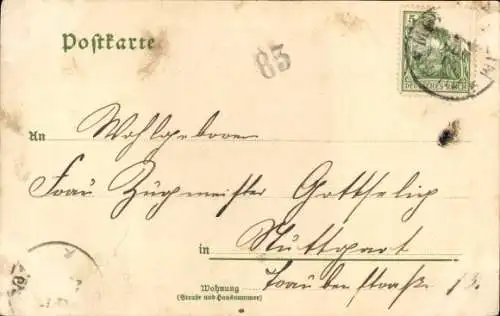 Postkarte
83
5
DEUTSCHES REICH
An Wohlgeboren
Frau Zugmeister Gottselig
in Stuttgart
Wohnung
(Straße und Hausnummer)
Traubenstraße 13.